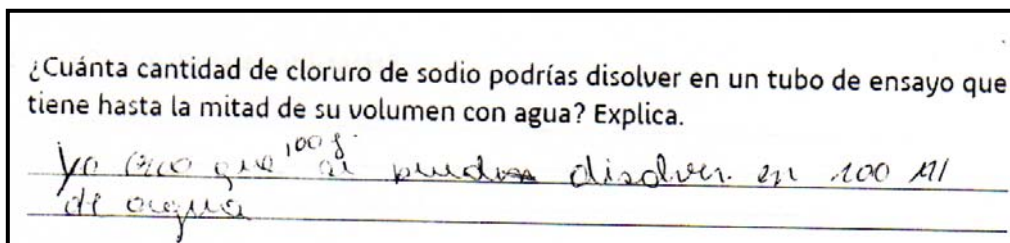 ¿Cuánta cantidad de cloruro de sodio podrías disolver en un tubo de ensayo que
tiene hasta la mitad de su volumen con agua? Explica.
Yo creo que 100 g. si pueden disolver en 100 Ml
de agua